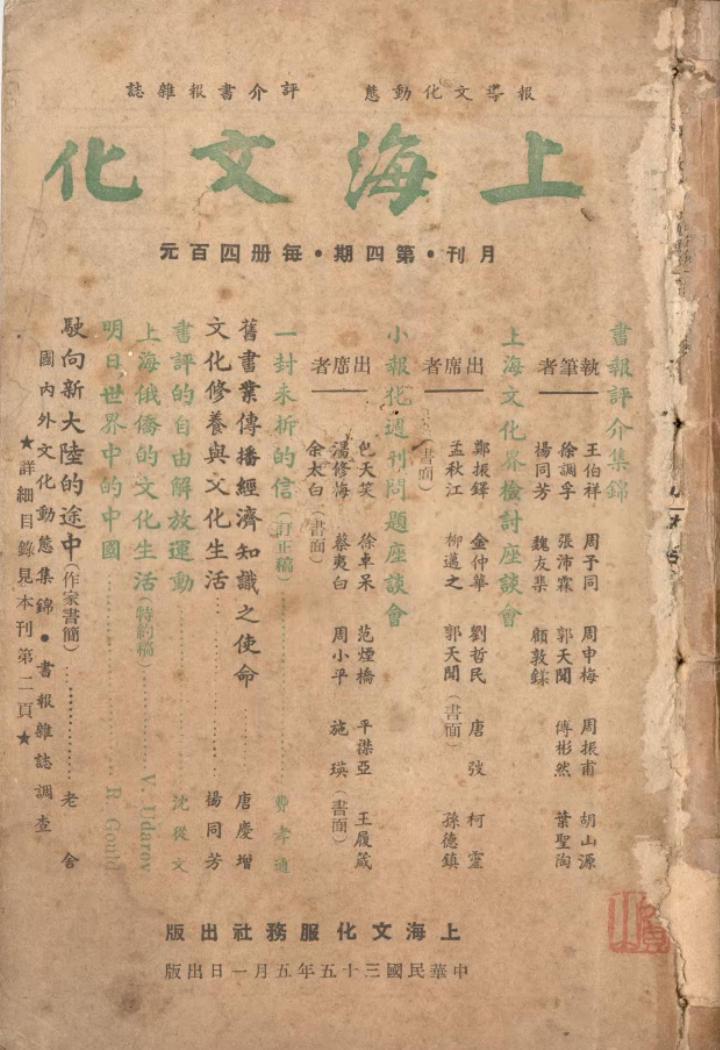 報導文化動態　評介書報雜誌
上海文化
月刊・第四期・每册四百元
書報評介集錦
執筆者
王伯祥　周予同　周申梅　周振甫　胡山源
徐調孚　張沛霖　郭天聞　傅彬然　葉聖陶
楊同芳　魏友棐　顧敦鍒
上海文化界檢討座談會
出席者
鄭振鐸　金仲華　劉哲民　唐弢　柯靈
孟秋江　柳邁之　郭天聞（書面）　孫德鎮
（書面）
小報化週刊問題座談會
出席者
包天笑　徐卓呆　范煙橋　平襟亞　王履箴
潘修海　蔡夷白　周小平　施瑛（書面）
余太白（書面）
一封未拆的信（訂正稿）…………費孝通
舊書業傳播經濟知識之使命…………唐慶增
文化修養與文化生活…………楊同芳
書評的自由解放運動…………沈從文
上海俄僑的文化生活（特約稿）…………V. Udarov
明日世界中的中國…………R. Gould
駛向新大陸的途中（作家書簡）…………老舍
國內外文化動態集錦・書報雜誌調查
★詳細目錄見本刊第二頁★
上海文化服務社出版
中華民國三十五年五月一日出版